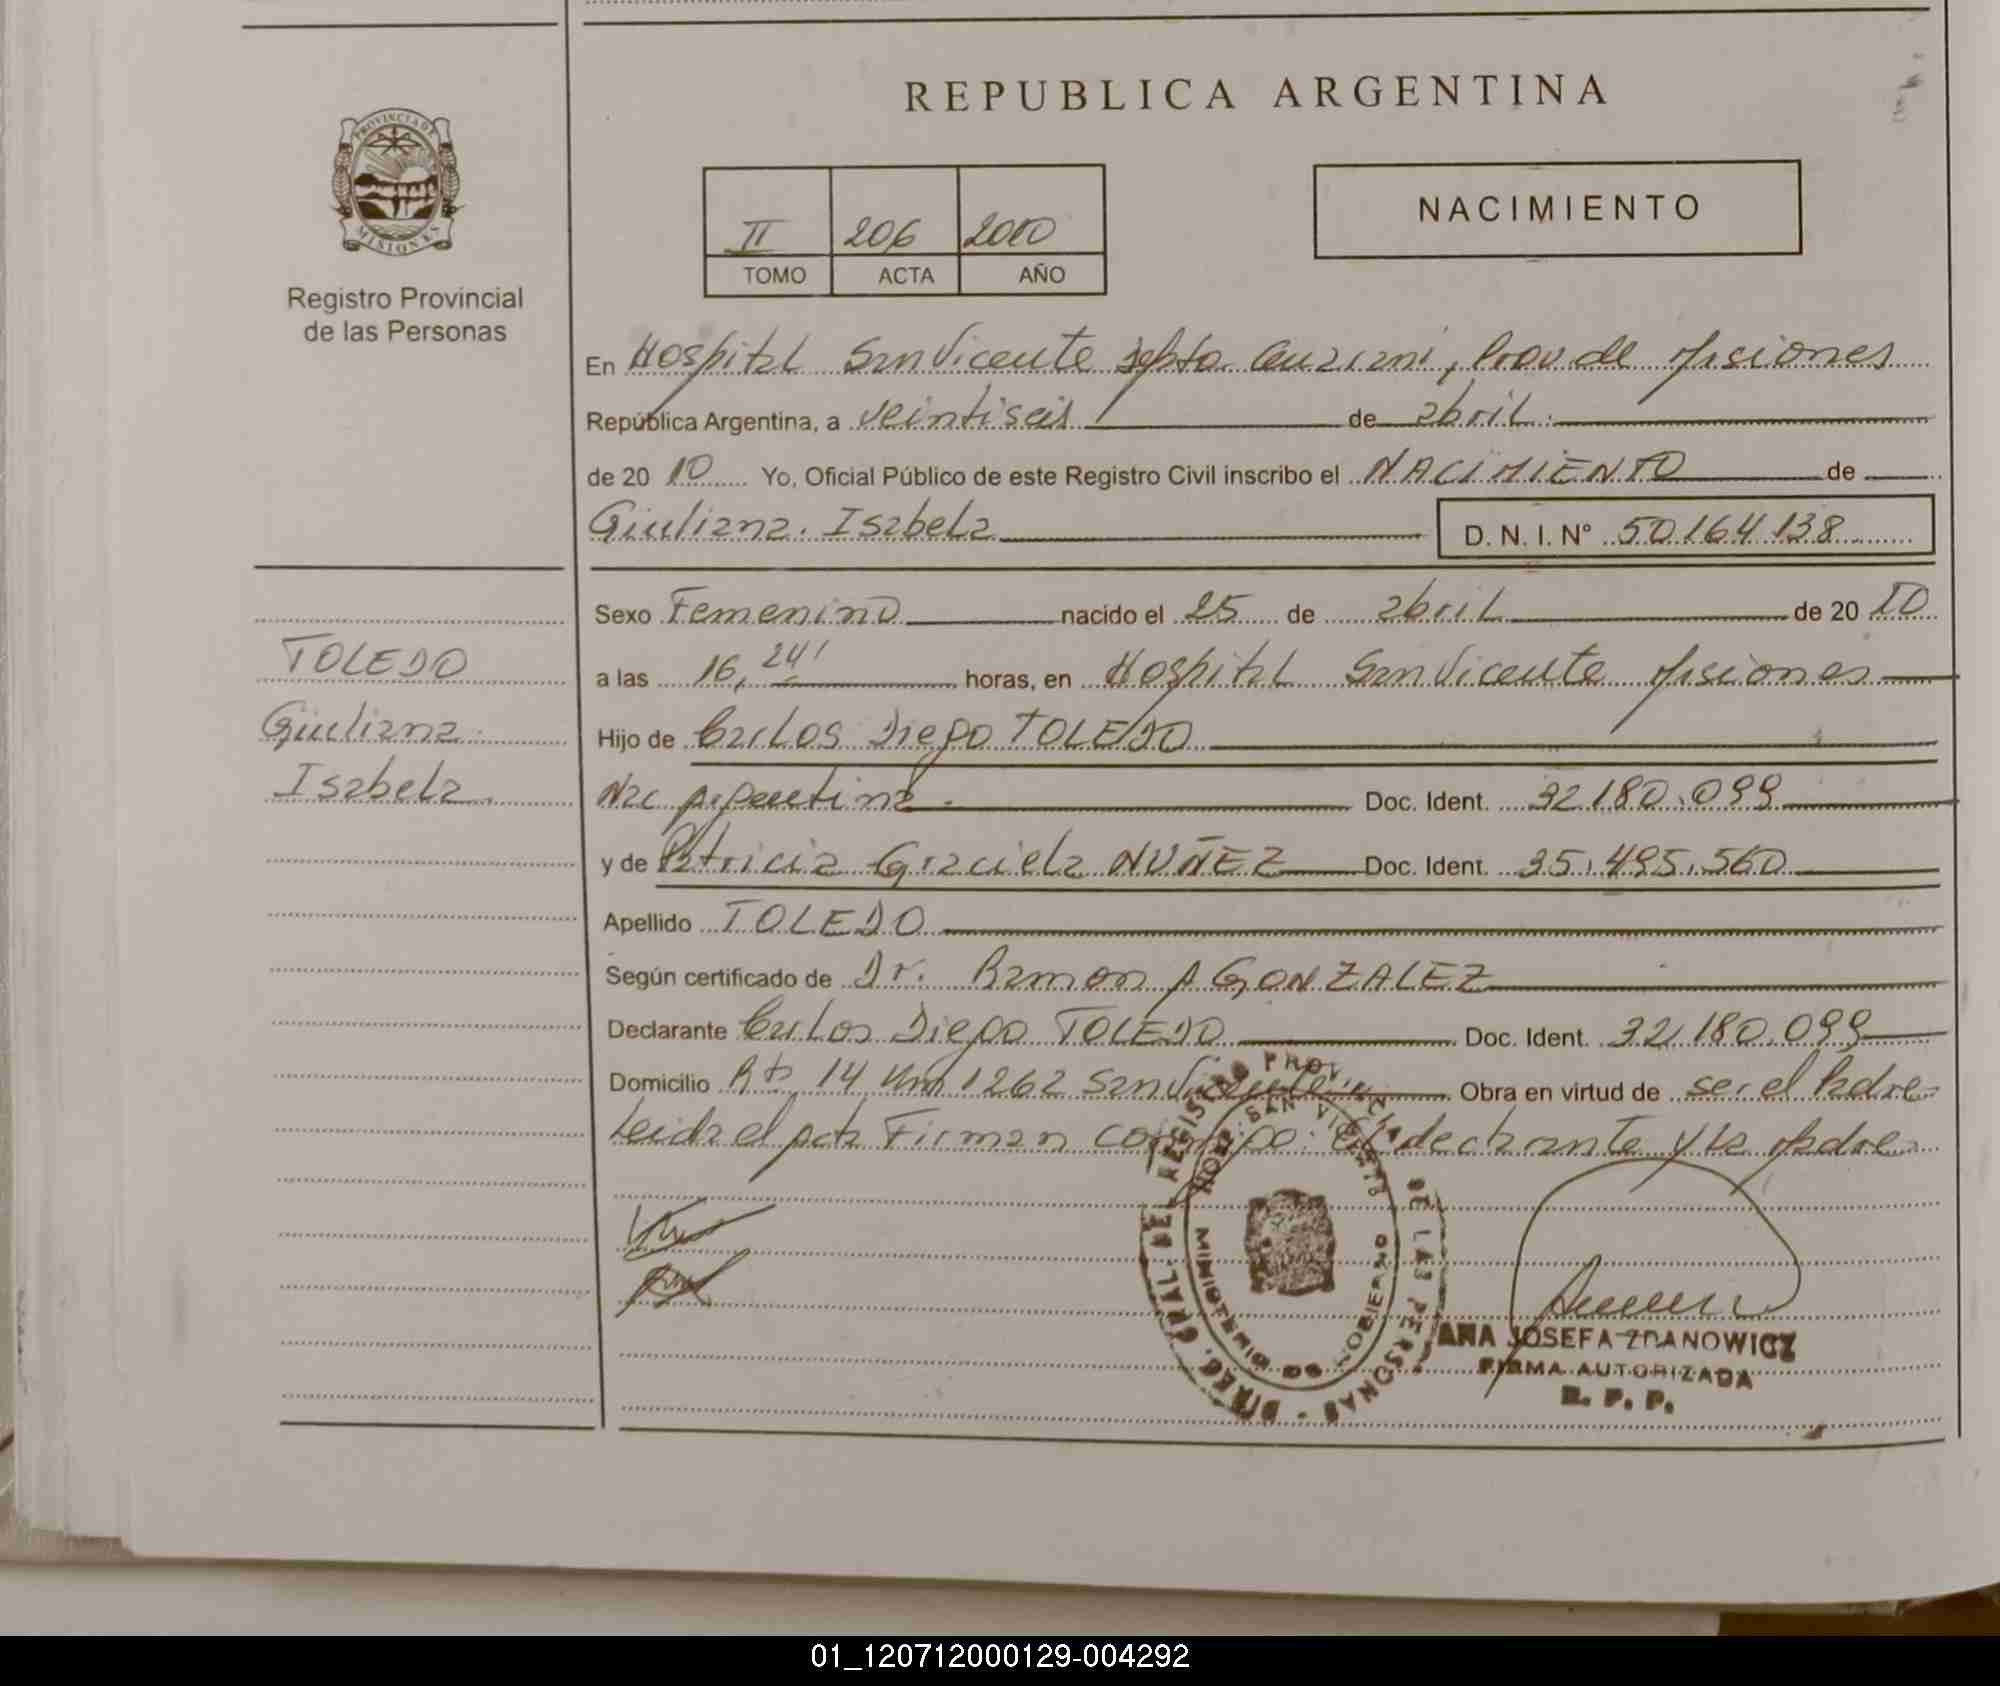 REPUBLICA ARGENTINA
PROVINCIA DE
MISIONES
Registro Provincial
de las Personas
II 206 2000
TOMO ACTA AÑO
NACIMIENTO
En Hospital San Vicente Depto. Guarani, Prov de Misiones
República Argentina, a veintiseis de abril.
de 20 10 Yo, Oficial Público de este Registro Civil inscribo el NACIMIENTO de
Giuliana. Isabela
D. N. I. N° 50164138
TOLEDO
Giuliana.
Isabela.
Sexo Femenino nacido el 25 de abril de 20 10
a las 16, 24' horas, en Hospital San Vicente Misiones
Hijo de Carlos Diego TOLEDO
Nac Argentina. Doc. Ident. 32.180.099
y de Patricia Graciela NUÑEZ Doc. Ident. 35.495.560
Apellido TOLEDO
Según certificado de Dr. Ramon A GONZALEZ
Declarante Carlos Diego TOLEDO Doc. Ident. 32.180.099
Domicilio Rta 14 Km 1262 San Vicente Obra en virtud de ser el Padre
Leida el acta Firman conmigo: El declarante y la Madre
DIREC. GRAL. DEL REGISTRO PROVINCIAL DE LAS PERSONAS
HOSP. SAN VICENTE
MINISTERIO DE GOBIERNO
ANA JOSEFA ZDANOWICZ
FIRMA AUTORIZADA
R. P. P.
01_120712000129-004292